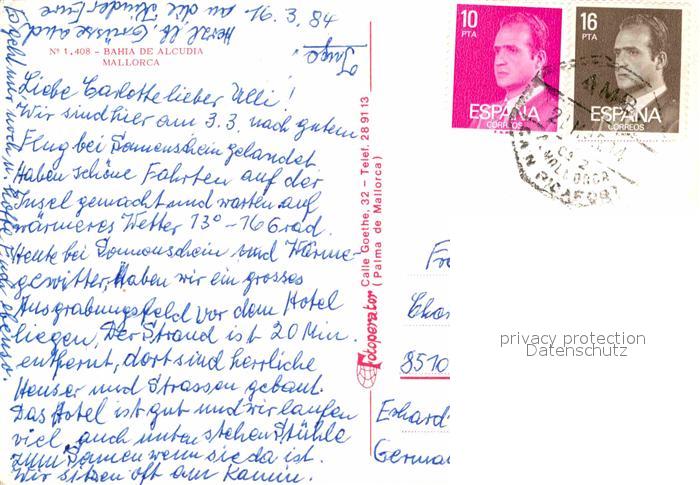 16.3.84
Nº 1.408 - BAHIA DE ALCUDIA
MALLORCA
Liebe Carlotte lieber Ulli!
Wir sind hier am 3.3. nach gutem
Flug bei Sonnenschein gelandet
Haben schöne Fahrten auf der
Insel gemacht und warten auf
wärmeres Wetter 13°-16 Grad.
Heute bei Sonnenschein und Wärme-
gewitter, Haben wir ein grosses
Ausgrabungsfeld vor dem Hotel
liegen, Der Strand ist 20 Min.
entfernt, dort sind herrliche
Heuser und Strassen gebaut.
Das Hotel ist gut und wir laufen
viel, auch unten stehen Stühle
zum Sonnen wenn sie da ist.
Wir sitzen oft am Kamin.
Es geht nur noch u. hoffe Euch ebenso.
Herzl. lb Grüsse auch
an die Kinder Eure
Inga.
Fotoperator Calle Goethe, 32 - Telef. 28 91 13
(Palma de Mallorca)
10
PTA
ESPAÑA
CORREOS
16
PTA
ESPAÑA
CORREOS
MALLORCA
8510
Erhard
Germa
privacy protection
Datenschutz